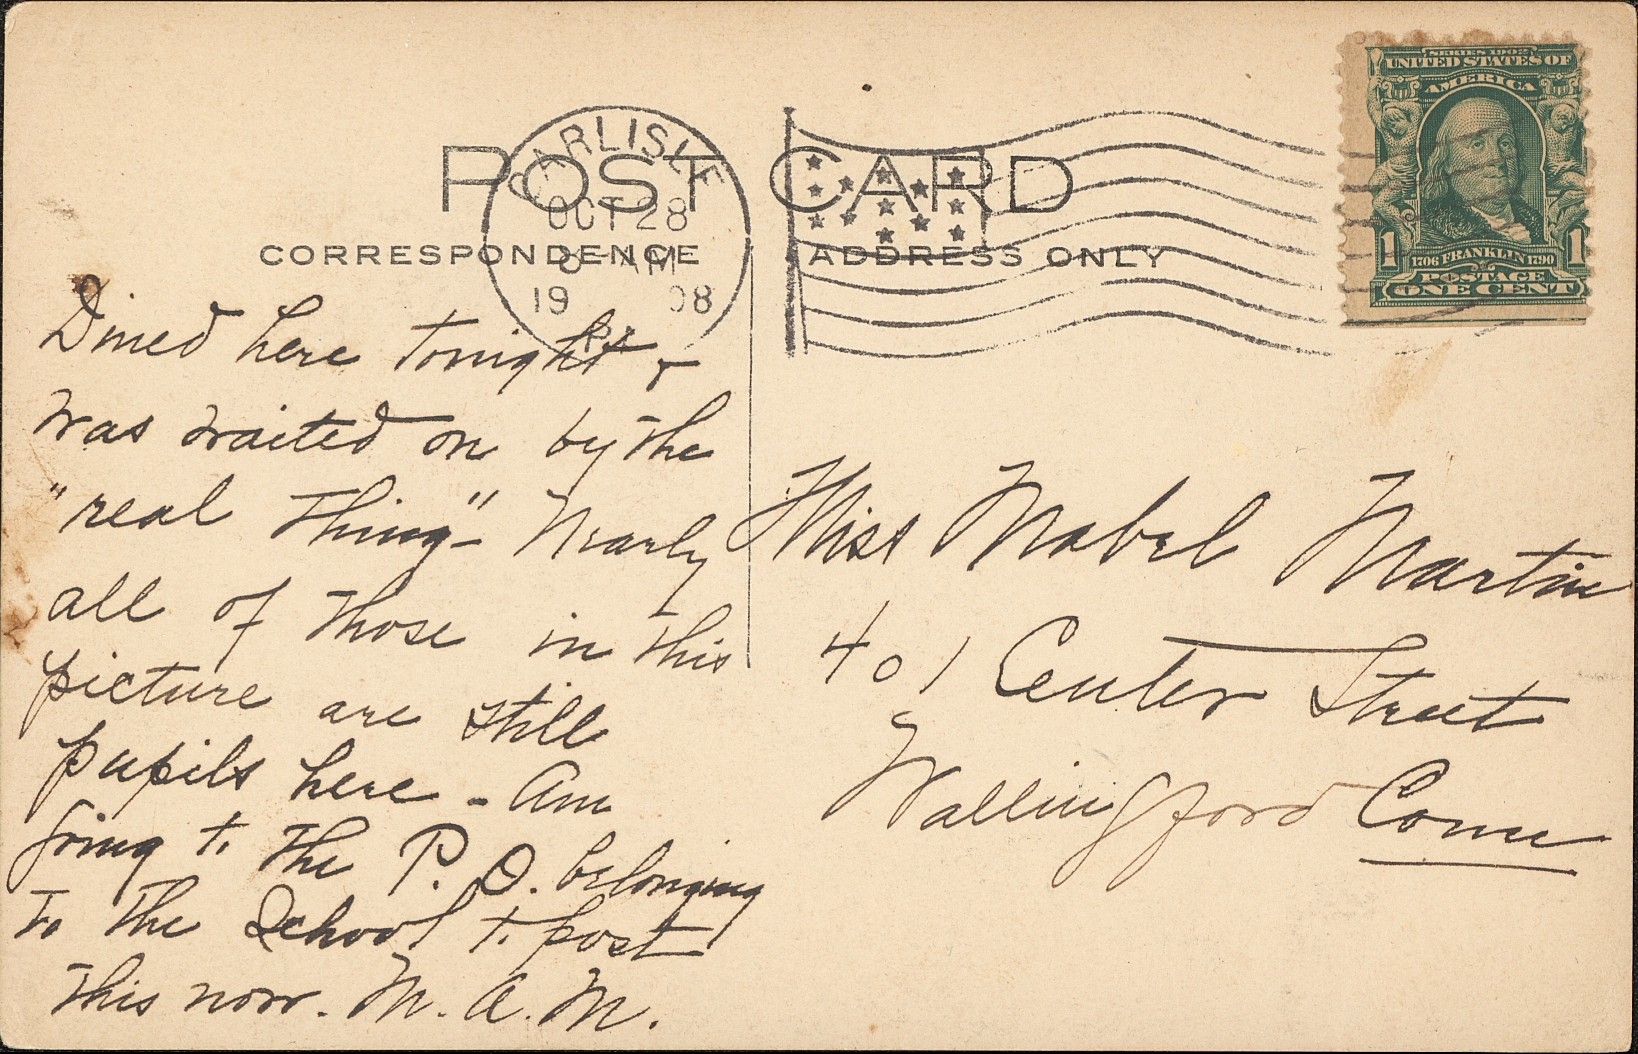 POST CARD
CORRESPONDENCE
ADDRESS ONLY
CARLISLE
OCT 28
8 AM
19 08
PA
SERIES 1902
UNITED STATES OF
AMERICA
1 1706 FRANKLIN 1790 1
POSTAGE
ONE CENT
Dined here tonight &
was waited on by the
"real thing" - Nearly
all of those in this
picture are still
pupils here - Am
going to the P. O. belonging
to the School to post
this now. M. A. M.
Miss Mabel Martin
401 Center Street
Wallingford Conn